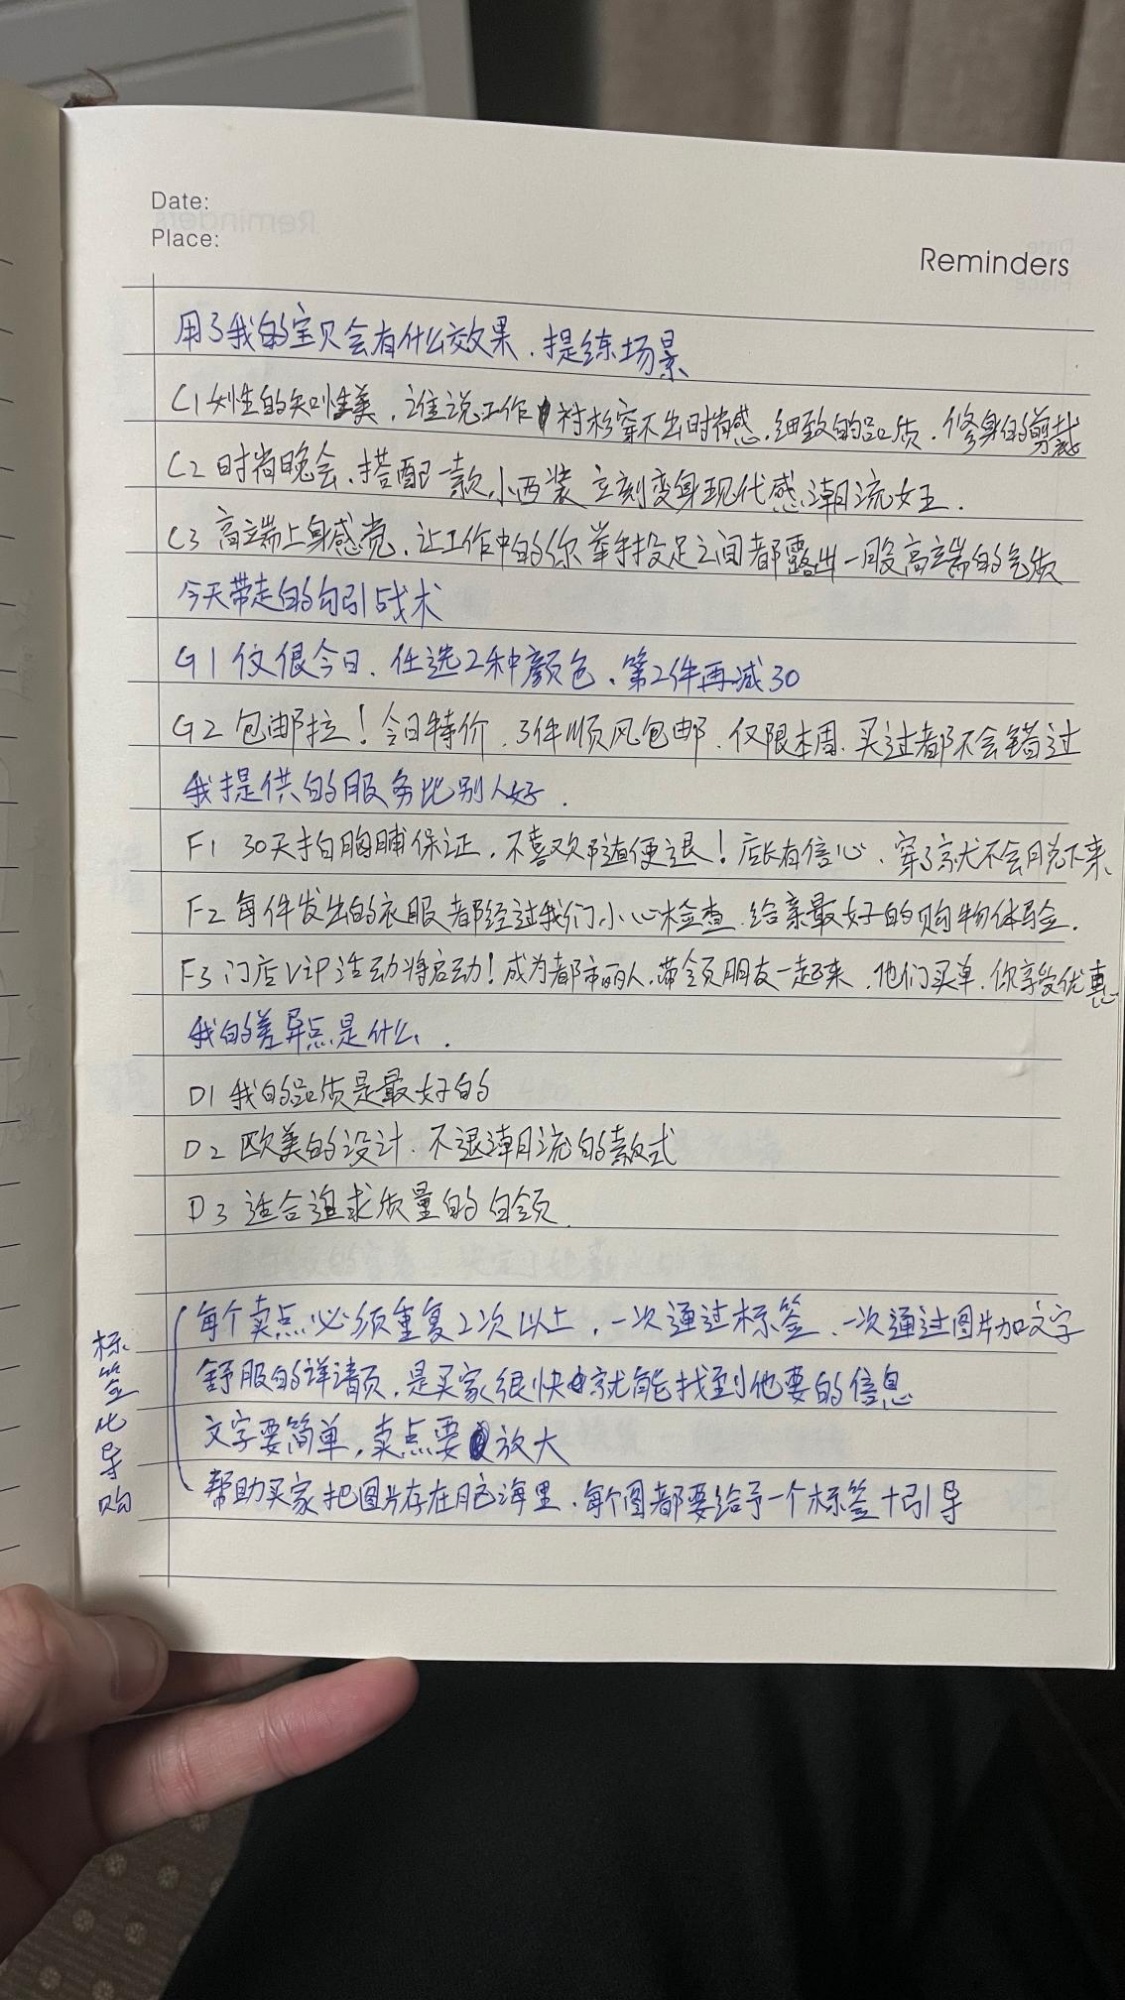 Date:
Place:
Reminders
用了我的宝贝会有什么效果.提练场景
C1 女性的知性美.谁说工作衬衫穿不出时尚感.细致的品质.修身的剪裁
C2 时尚晚会、搭配一款小西装 立刻变身现代感潮流女王.
C3 高端上身感觉.让工作中的你举手投足之间都露出一股高端的气质
今天带走的勾引战术
G1 仅限今日.任选2种颜色、第2件再减30
G2 包邮拉!今日特价.3件顺风包邮.仅限本周.买过都不会错过
我提供的服务比别人好.
F1 30天拍胸脯保证.不喜欢随便退!店长有信心、穿了就不会脱下来
F2 每件发出的衣服都经过我们小心检查.给亲最好的购物体验.
F3 门店VIP活动将启动!成为都市丽人.带领朋友一起来.他们买单.你享受优惠
我的差异点是什么.
D1 我的品质是最好的
D2 欧美的设计.不退潮流的款式
D3 适合追求质量的白领.
标签化导购
每个卖点必须重复2次以上.一次通过标签、一次通过图片加文字
舒服的详请页.是买家很快就能找到他要的信息
文字要简单,卖点要放大
帮助买家把图片存在脑海里.每个图都要给予一个标签+引导